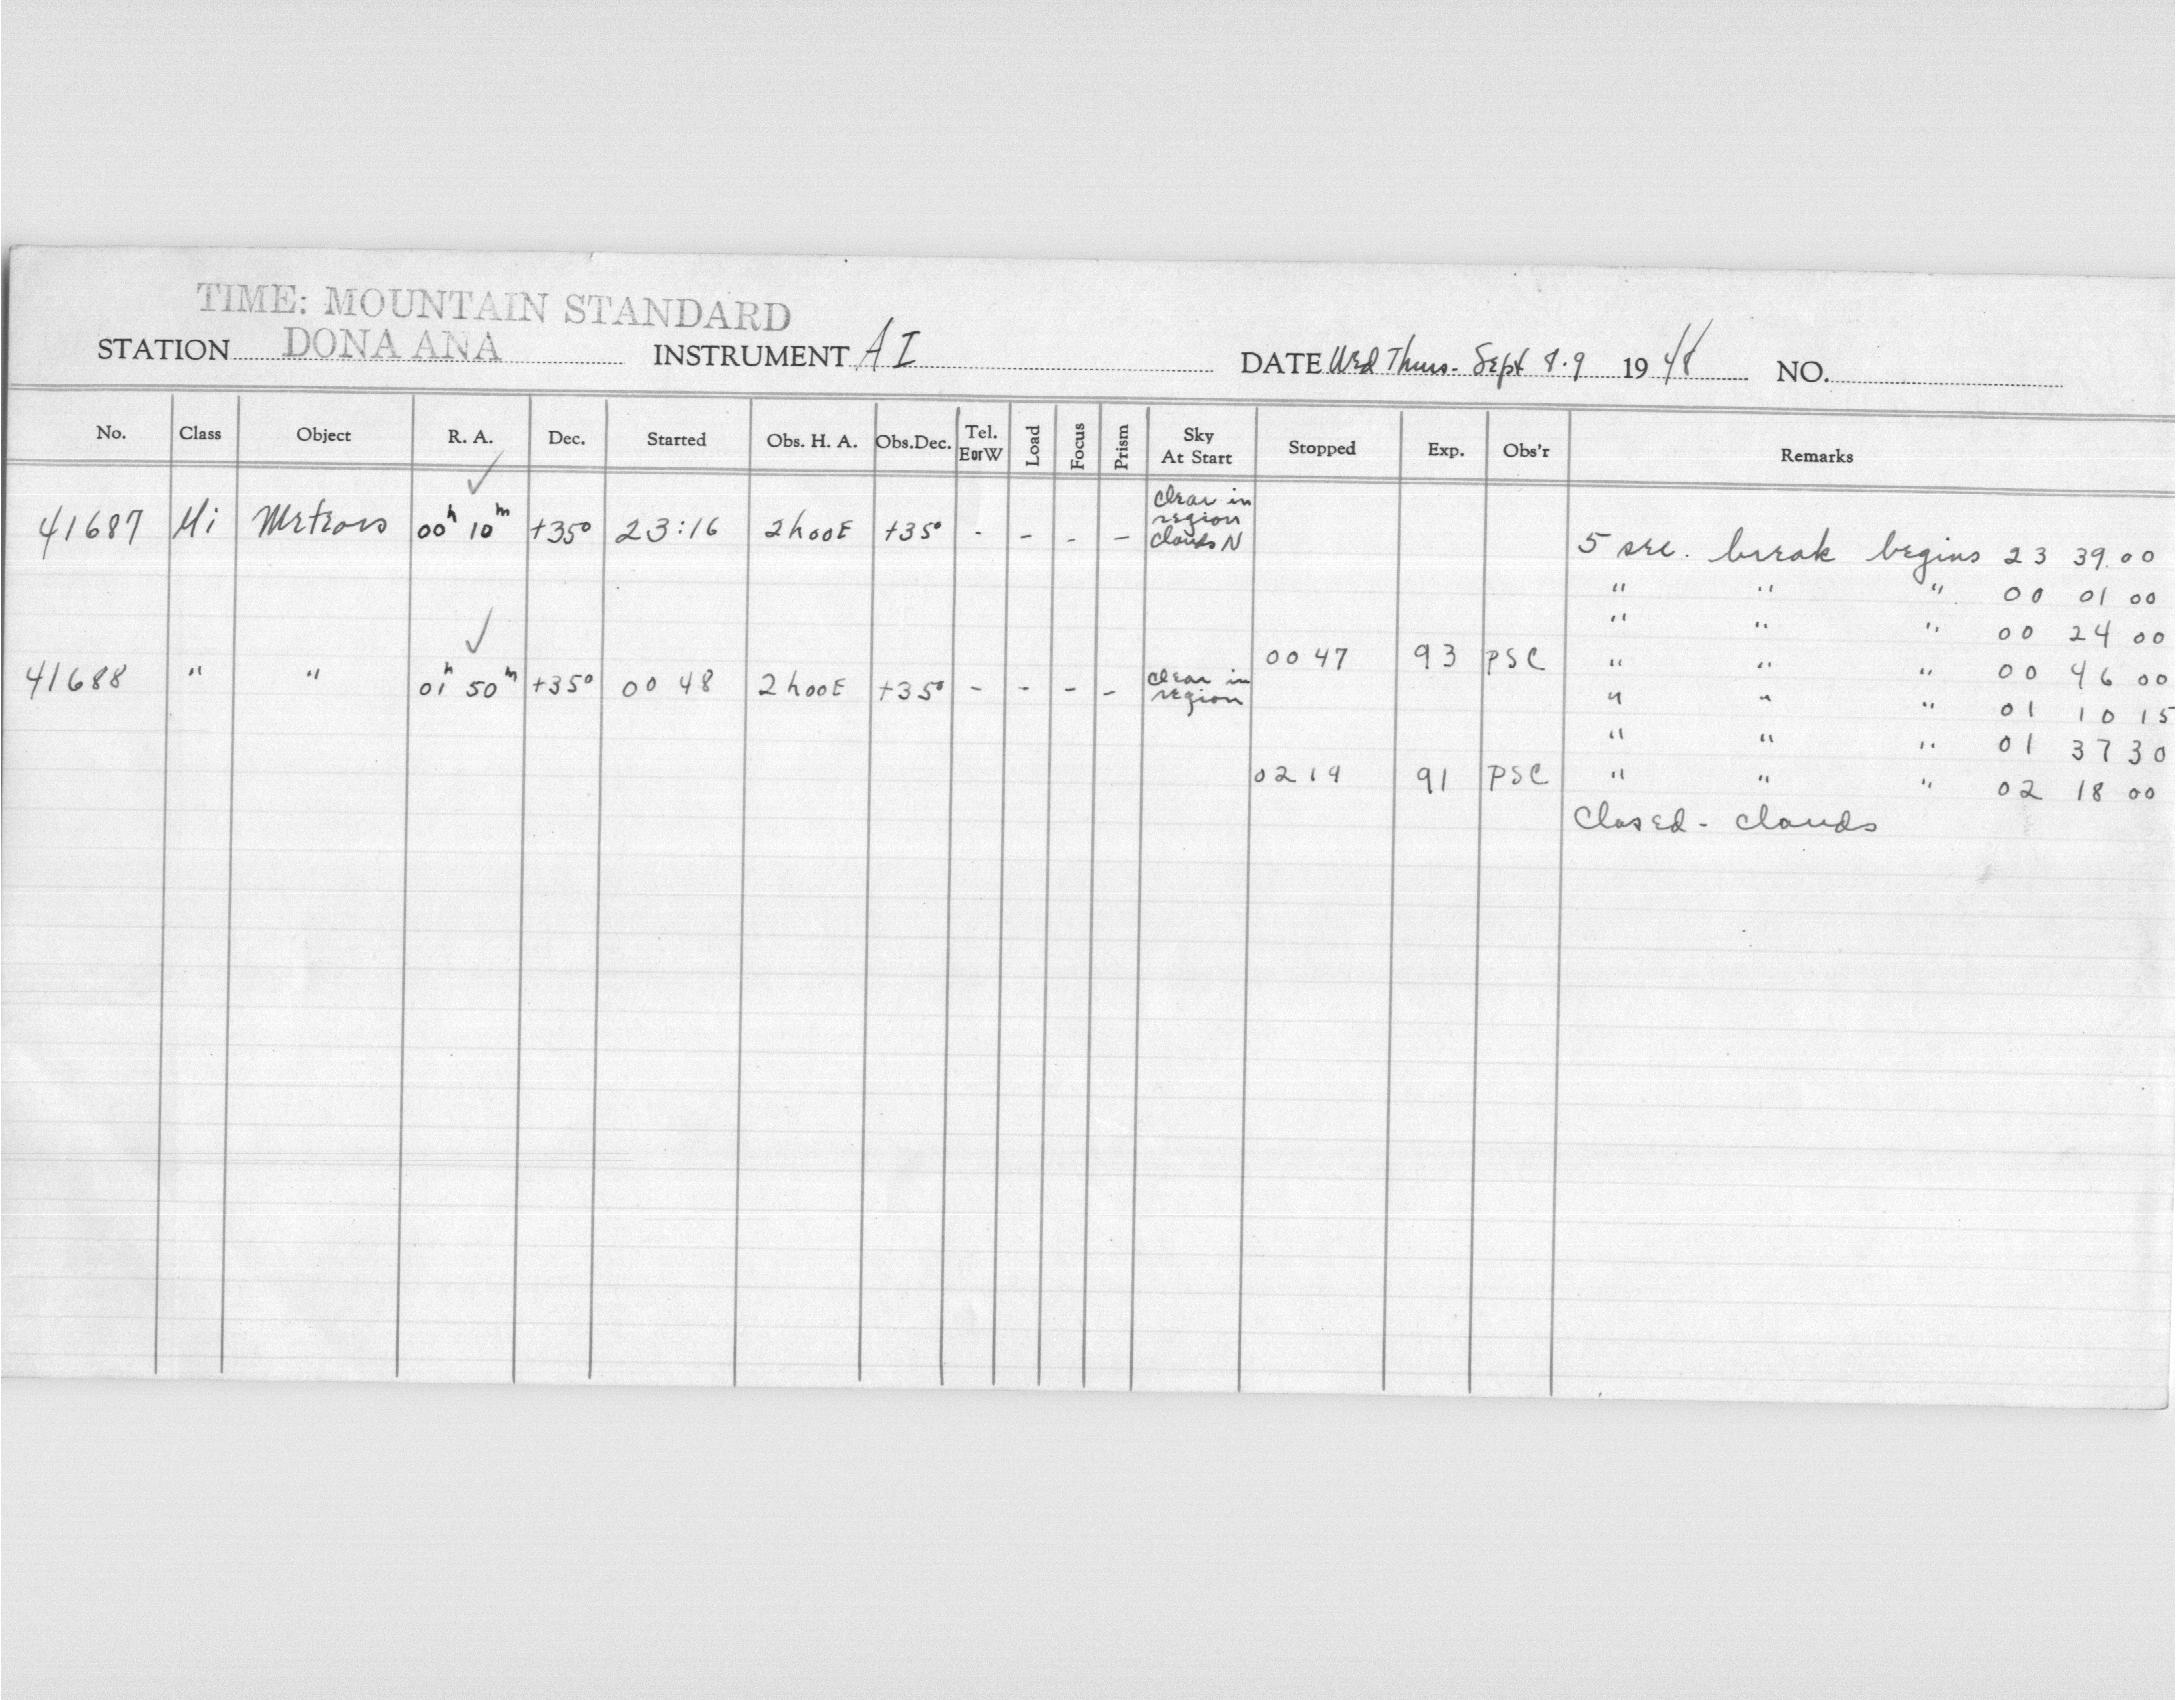 TIME: MOUNTAIN STANDARD
STATION DONA ANA INSTRUMENT AI DATE Wed Thurs. Sept 8-9 1948 NO.
No. Class Object R. A. Dec. Started Obs. H. A. Obs.Dec. Tel. E or W Load Focus Prism Sky At Start Stopped Exp. Obs'r Remarks
✓
41687 Mi Meteors 00h 10m +35° 23:16 2h00E +35° - - - - clear in region clouds N
5 sec. break begins 23 39 00
" " " 00 01 00
" " " 00 24 00
✓
0047 93 PSC " " " 00 46 00
41688 " " 01h 50m +35° 00 48 2h00E +35° - - - - clear in region
" " " 01 10 15
" " " 01 37 30
0219 91 PSC " " " 02 18 00
Closed - clouds